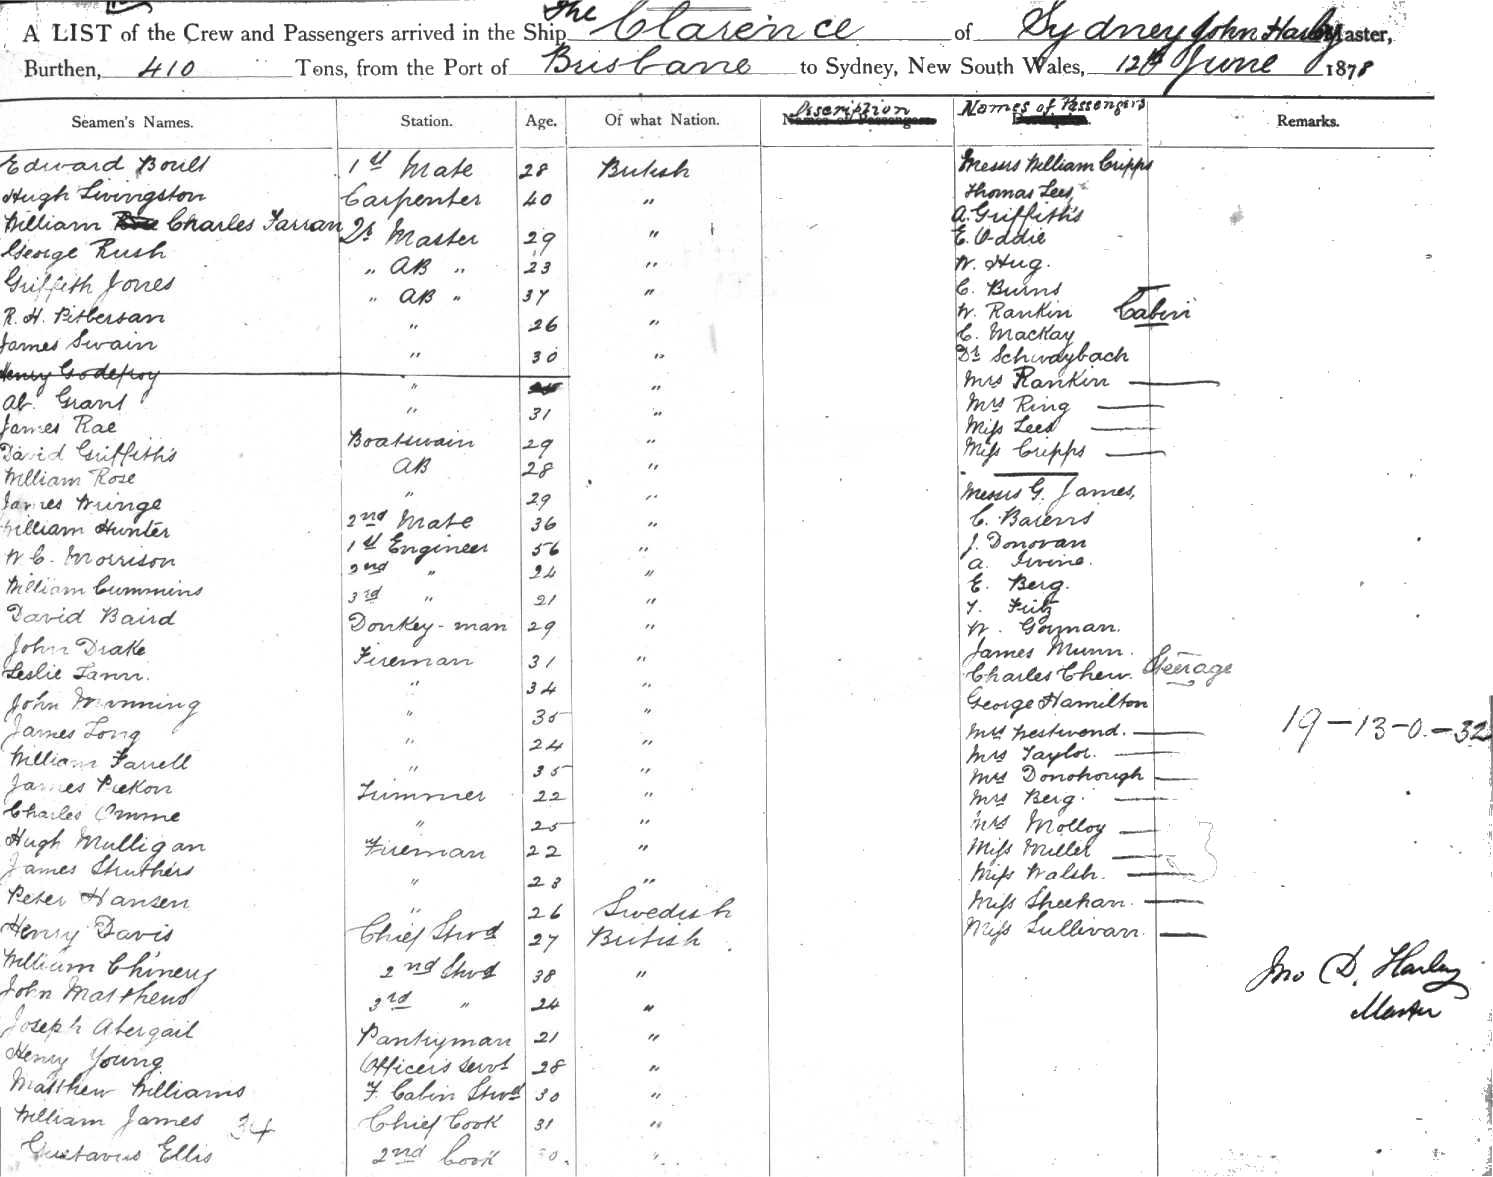 A LIST of the Crew and Passengers arrived in the Ship The Clarence of Sydney John Harley Master,
Burthen, 410 Tons, from the Port of Brisbane to Sydney, New South Wales, 12th June 1878
Seamen's Names. Station. Age. Of what Nation. Description Names of Passengers Remarks.
Edward Boult 1st Mate 28 British Messrs William Cripps
Hugh Livingston Carpenter 40 " Thomas Lees
William Charles Farran Qr Master 29 " A. Griffiths
George Rush " AB " 23 " E. Oddie
Griffith Jones " AB " 37 " W. Hug.
R. H. Pitbersan " 26 " C. Burns
James Swain " 30 " W. Rankin Cabin
Henry Godefroy " " C. Mackay
Ab. Grant " 31 " Dr Schwaybach
James Rae Boatswain 29 " Mrs Rankin
David Griffiths AB 28 " Mrs Ring
William Rose " 29 " Miss Lees
James Winge 2nd Mate 36 " Miss Cripps
William Hunter 1st Engineer 56 " Messrs G. James,
W C. Morrison 2nd " 24 " C. Barens
William Cummins 3rd " 21 " J. Donovan
David Baird Donkey-man 29 " A. Irvine.
John Drake Fireman 31 " E. Berg.
Leslie Tann. " 34 " T. Fitz
John Manning " 35 " W. Gorman.
James Long " 24 " James Munn.
William Farrell " 35 " Charles Chew. Steerage
James Pickon Trimmer 22 " George Hamilton
Charles Omme " 25 " Mrs Westwond.
19-13-0-32
Hugh Mulligan Fireman 22 " Mrs Taylor.
James Struthers " 23 " Mrs Donohough
Peter Hansen " 26 Swedish Mrs Berg.
Henry Davis Chief Stwd 27 British Mrs Molloy
William Chinery 2nd Stwd 38 " Miss Miller
John Matthews 3rd " 24 " Miss Walsh.
Joseph Abergail Pantryman 21 " Miss Sheehan.
Henry Young Officers Servt 28 " Miss Sullivan.
Matthew Williams F. Cabin Stwd 30 "
William James 34 Chief Cook 31 "
Gustavus Ellis 2nd Cook "
Jno D. Harley
Master